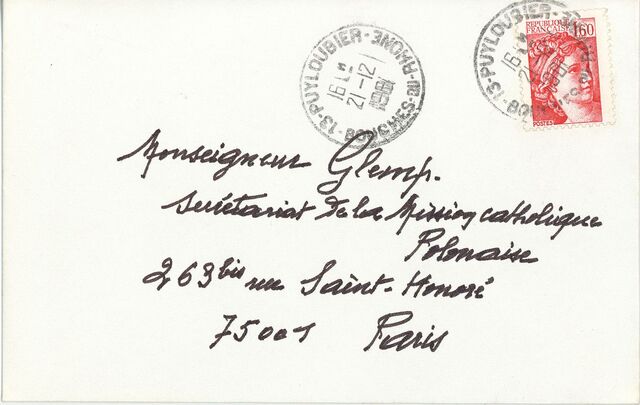 13-PUYLOUBIER
16 H
21-12
1981
BOUCHES-DU-RHONE
REPUBLIQUE
FRANÇAISE
1,60
POSTES
13-PUYLOUBIER
16 H
Monseigneur Glemp.
Secrétariat de la Mission catholique
Polonaise
263 bis rue Saint-Honoré
75001 Paris